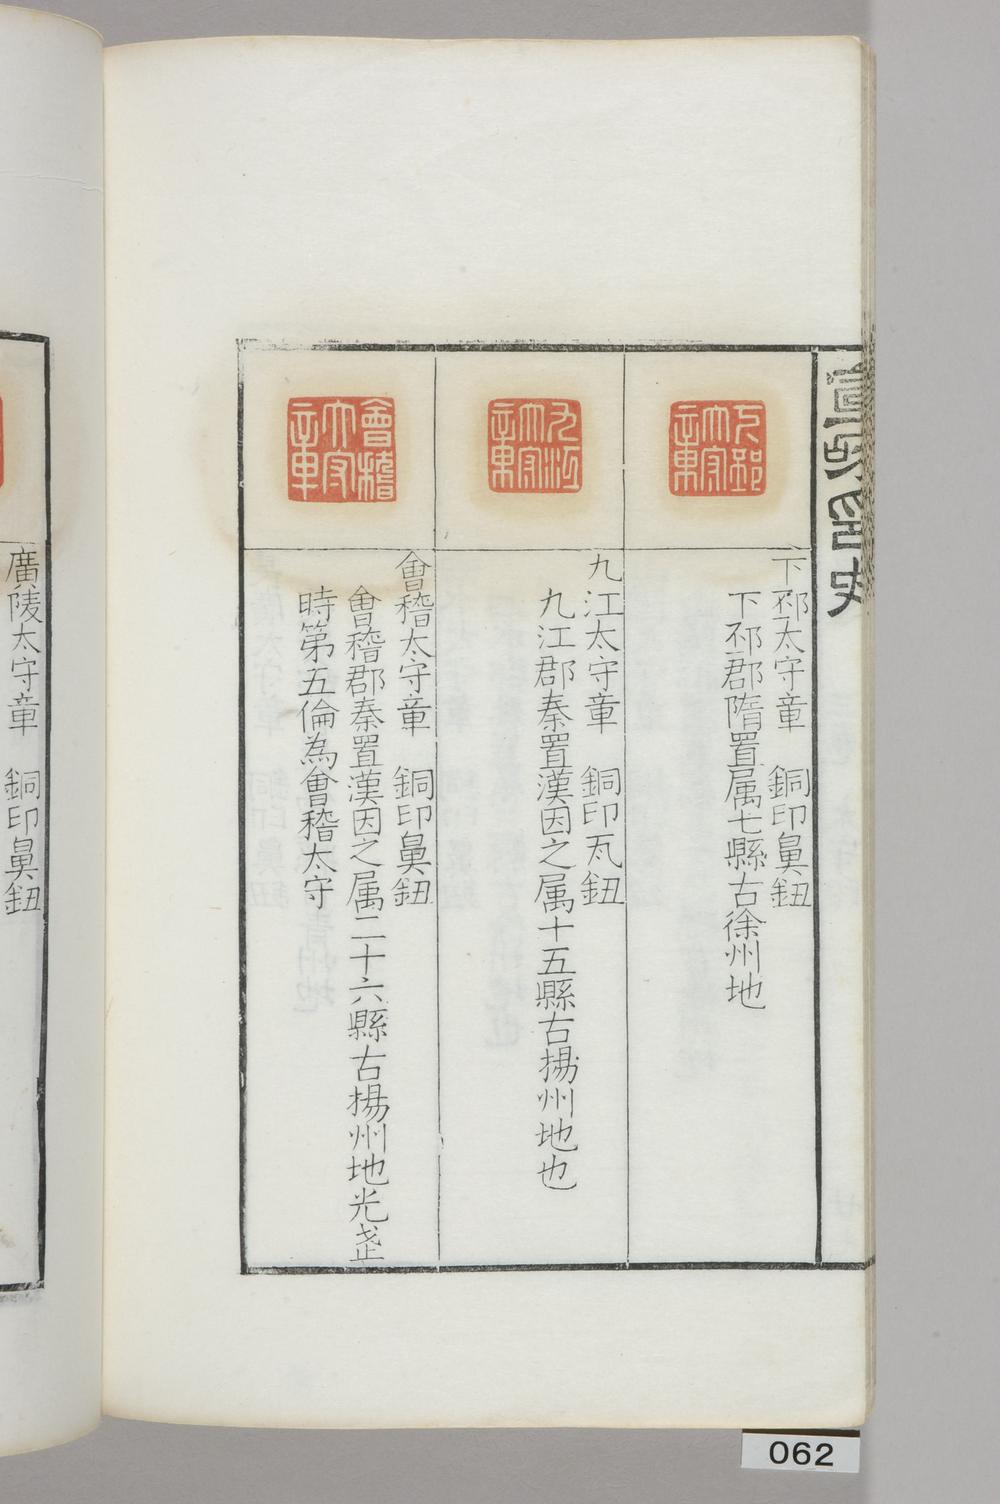 下邳太守章
下邳太守章　銅印鼻鈕
下邳郡隋置属七縣古徐州地
九江太守章
九江太守章　銅印瓦鈕
九江郡秦置漢因之属十五縣古揚州地也
會稽太守章
會稽太守章　銅印鼻鈕
會稽郡秦置漢因之属二十六縣古揚州地光武
時第五倫為會稽太守
廣陵太守章　銅印鼻鈕
062